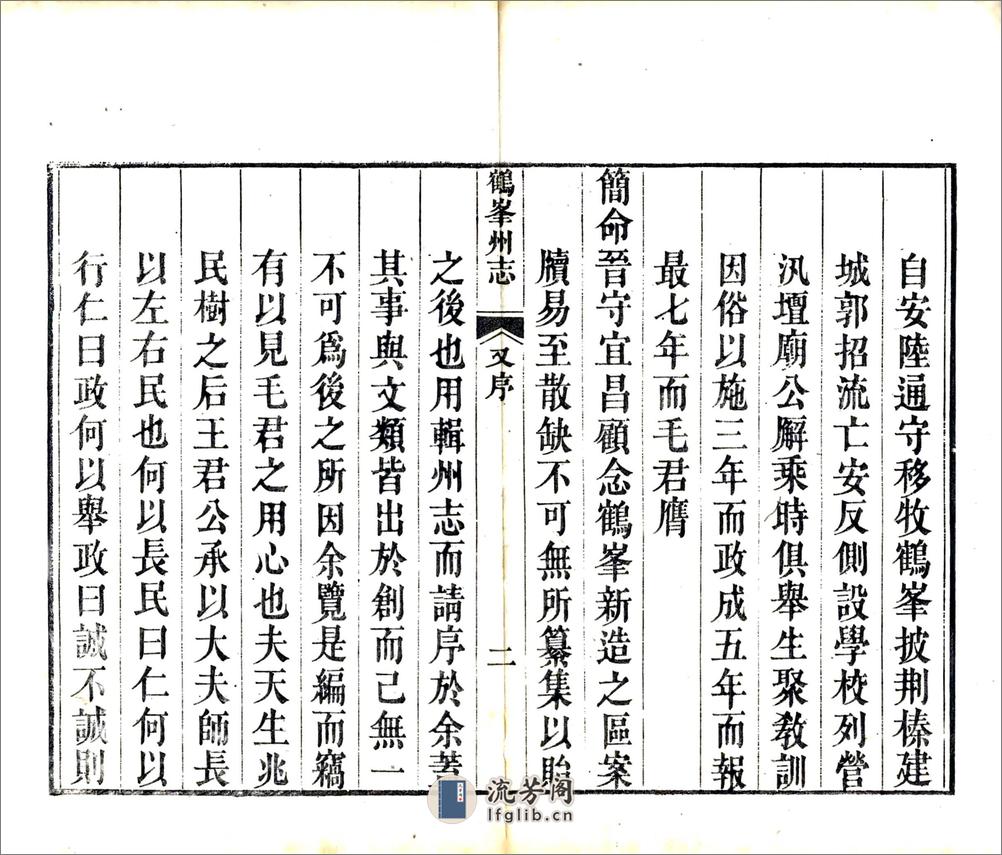 自安陸通守移牧鶴峯披荆榛建
城郭招流亡安反側設學校列營
汛壇廟公廨乘時俱舉生聚教訓
因俗以施三年而政成五年而報
最七年而毛君膺
簡命晉守宜昌顧念鶴峯新造之區案
牘易至散缺不可無所纂集以貽
鶴峯州志
又序
二
之後也用輯州志而請序於余著
其事與文類皆出於創而已無一
不可爲後之所因余覽是編而竊
有以見毛君之用心也夫天生兆
民樹之后王君公承以大夫師長
以左右民也何以長民曰仁何以
行仁曰政何以舉政曰誠不誠則
流芳阁
lfglib.cn